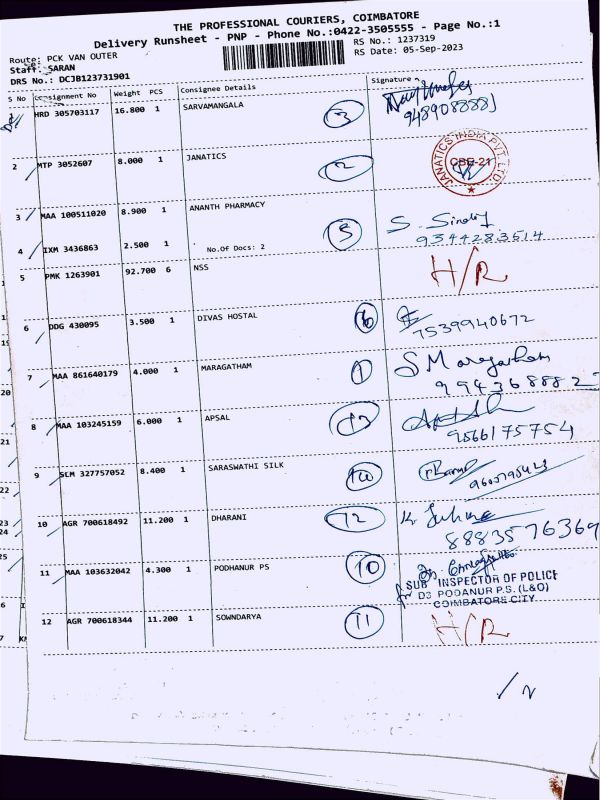 THE PROFESSIONAL COURIERS, COIMBATORE
Delivery Runsheet - PNP - Phone No.:0422-3505555 - Page No.:1
Route: PCK VAN OUTER RS No.: 1237319
Staff: SARAN RS Date: 05-Sep-2023
DRS No.: DCJB123731901
S No Consignment No Weight PCS Consignee Details Signature
HRD 305703117 16.800 1 SARVAMANGALA 3
9489088885
2 MTP 3052607 8.000 1 JANATICS 2 JANATICS INDIA PVT. LTD. CBE-21
3 MAA 100511020 8.900 1 ANANTH PHARMACY
4 IXM 3436863 2.500 1 No.Of Docs: 2 5 S.
9344283514
5 PMK 1263901 92.700 6 NSS H/R
6 DDG 430095 3.500 1 DIVAS HOSTAL 16
7539940672
7 MAA 861640179 4.000 1 MARAGATHAM 1 S Maragatham
9943688827
8 MAA 103245159 6.000 1 APSAL
9566175754
9 SLM 327757052 8.400 1 SARASWATHI SILK
10 AGR 700618492 11.200 1 DHARANI 12 K.
8883576369
11 MAA 103632042 4.300 1 PODHANUR PS 10
SUB INSPECTOR OF POLICE
for D3 PODANUR P.S. (L&O)
COIMBATORE CITY
12 AGR 700618344 11.200 1 SOWNDARYA 11 H/R